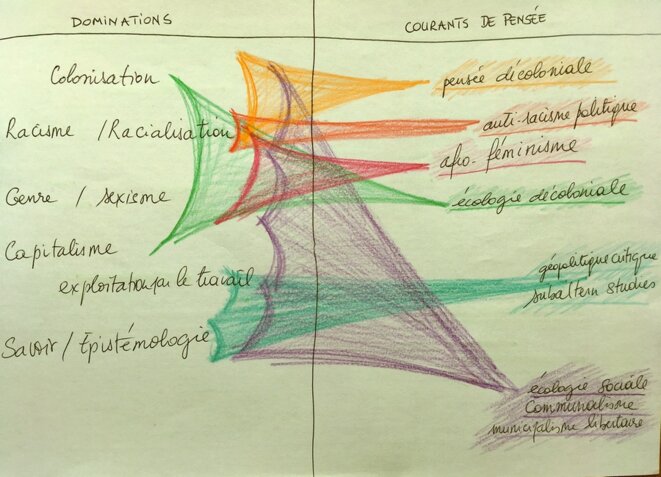 DOMINATIONS
COURANTS DE PENSÉE
Colonisation
Racisme / Racialisation
Genre / sexisme
Capitalisme
exploitation par le travail
Savoir / Epistémologie
pensée décoloniale
anti-racisme politique
afro-féminisme
écologie décoloniale
géopolitique critique
subaltern studies
écologie sociale
Communalisme
municipalisme libertaire